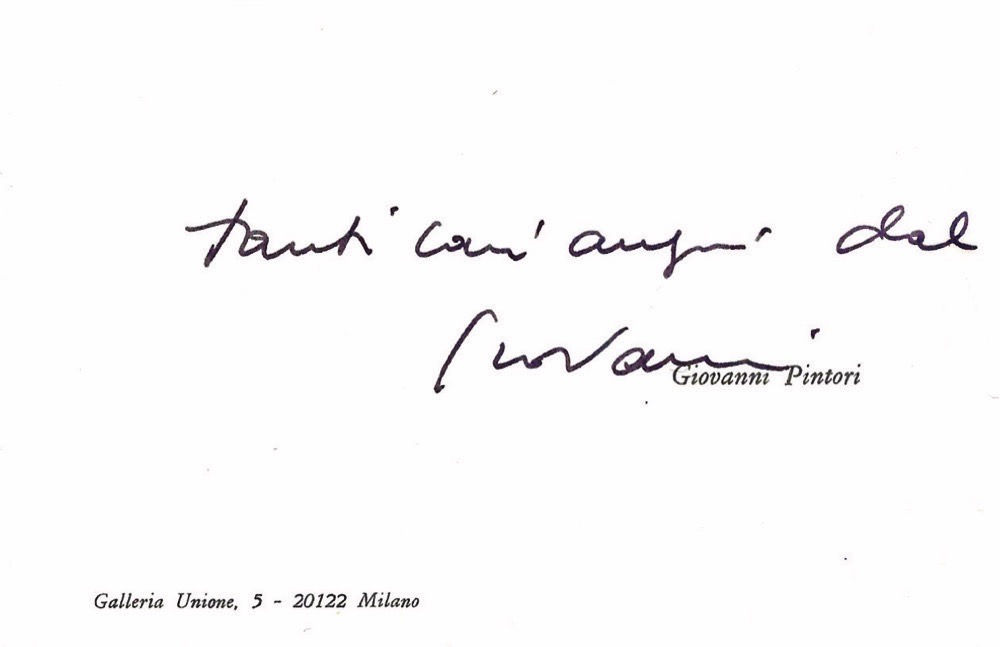 tanti cari auguri dal
Giovanni
Giovanni Pintori
Galleria Unione, 5 - 20122 Milano